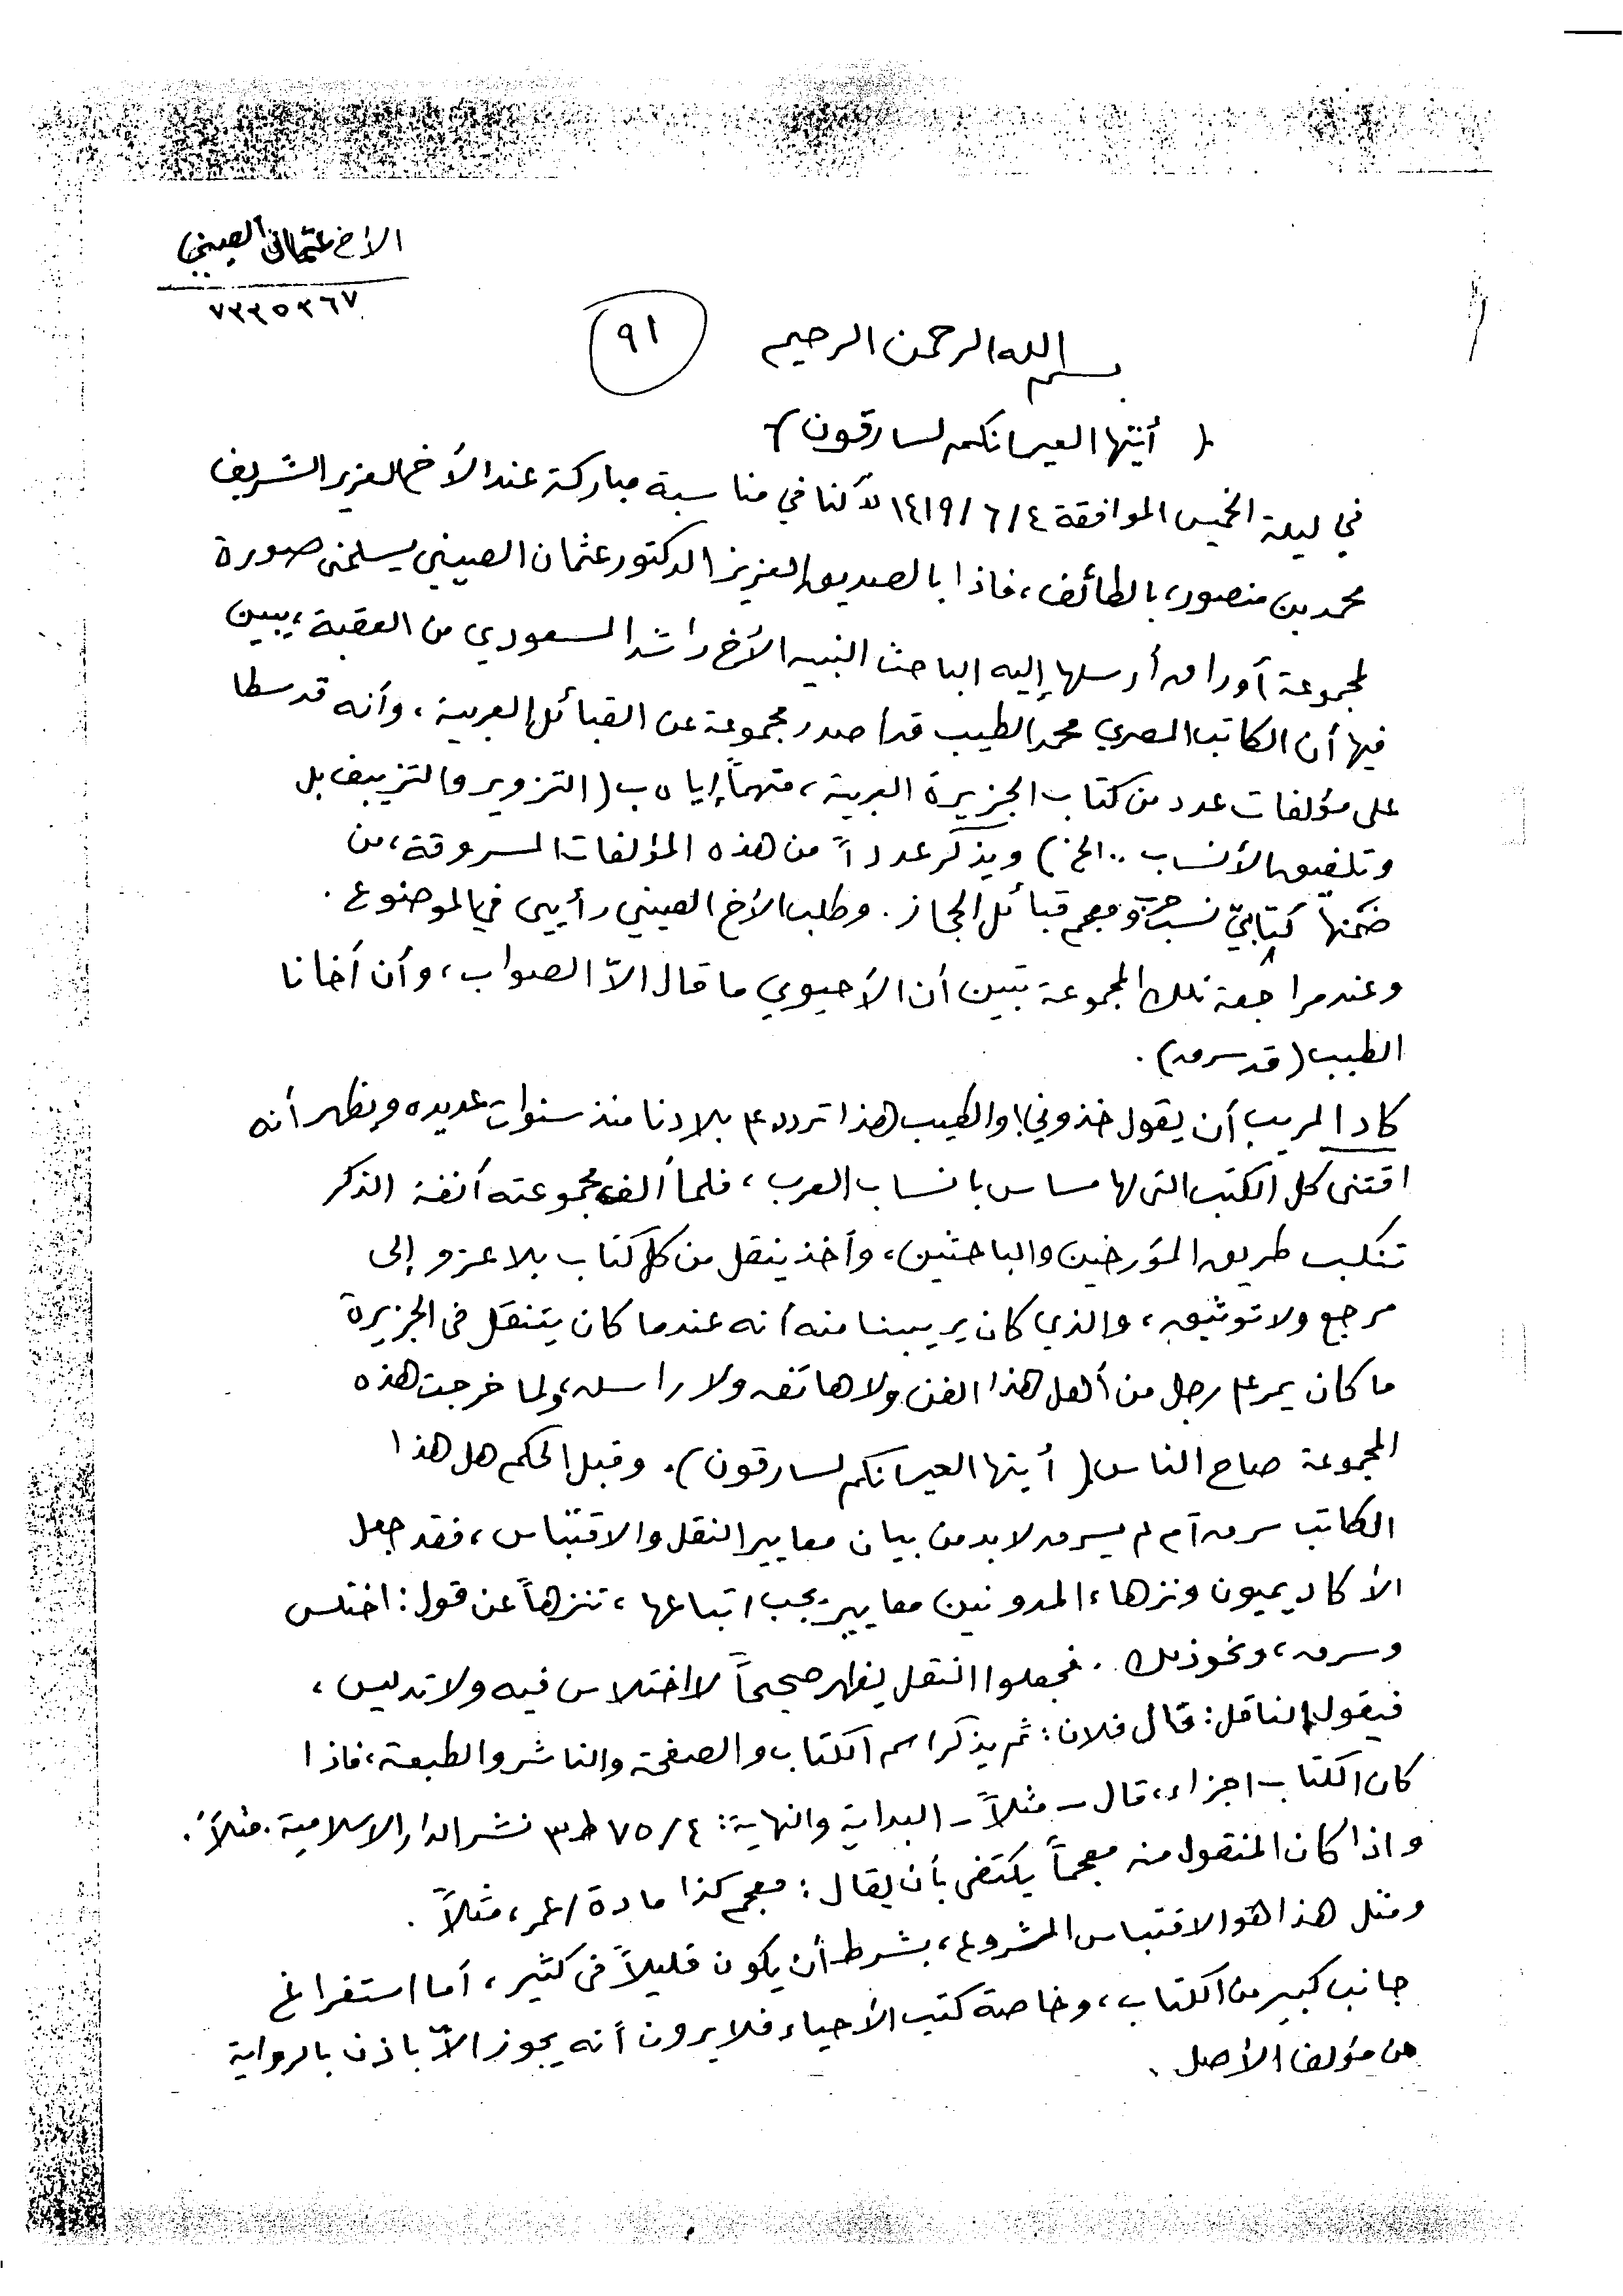 الأخ عثمان الصيني
٧٣٣٥٣٦٧
بسم الله الرحمن الرحيم
٩١
( أيتها العير انكم لسارقون )
في ليلة الخميس الموافقة ١٤١٩/٦/٤ كنا في مناسبة مباركة عند الأخ العزيز الشريف
محمد بن منصور، بالطائف، فاذا بالصديق العزيز الدكتور عثمان الصيني يسلمني صورة
لمجموعة أوراق أرسلها إليه الباحث النبيه الأخ راشد السعودي من العقبة، يبين
فيها أن الكاتب المصري محمد الطيب قد اصدر مجموعة عن القبائل العربية، وأنه قد سطا
على مؤلفات عدد من كتاب الجزيرة العربية، متهماً إياه ب (التزوير والتزييف بل
وتلفيق الأنساب .. الخ) ويذكر عدداً من هذه المؤلفات المسروقة، من
ضمنها كتابيّ نسب حرب ومعجم قبائل الحجاز. وطلب الأخ الصيني رأيي في الموضوع.
وعند مراجعة تلك المجموعة تبين أن الأحيوي ما قال الاّ الصواب، وأن أخانا
الطيب (قد سرق).
كاد المريب أن يقول خذوني! والطيب هذا تردد على بلادنا منذ سنوات عديده ويظهر أنه
اقتنى كل الكتب التي لها مساس بانساب العرب، فلما ألف مجموعته آنفة الذكر
تنكب طريق المؤرخين والباحثين، وأخذ ينقل من كل كتاب بلا عزو إلى
مرجع ولا توثيق، والذي كان يريبنا منه أنه عندما كان يتنقل في الجزيرة
ما كان يمر على رجل من أهل هذا الفن ولا هاتفه ولا راسله، ولما خرجت هذه
المجموعة صاح الناس ( أيتها العير انكم لسارقون). وقبل الحكم هل هذا
الكاتب سرق أم لم يسرق لا بد من بيان معايير النقل والاقتباس، فقد جعل
الأكاديميون ونزهاء المدونين معايير يجب اتباعها، تنزهاً عن قول: اختلس
وسرق، ونحو ذلك. فجعلوا النقل يظهر صحيحاً لا اختلاس فيه ولا تدليس،
فيقول الناقل: قال فلان: ثم يذكر اسم الكتاب والصفحة والناشر والطبعة، فاذا
كان الكتاب اجزاء، قال - مثلاً - البداية والنهاية: ٧٥/٤ ط٣ نشر الدار الاسلامية. مثلاً.
واذا كان المنقول منه معجماً يكتفى بأن يقال: معجم كذا مادة / عمر، مثلاً.
ومثل هذا هو الاقتباس المشروع، بشرط أن يكون قليلاً في كثير، أما استفراغ
جانب كبير من الكتاب، وخاصة كتب الأحياء فلا يرون أنه يجوز الاّ باذن بالرواية
من مؤلف الأصل.